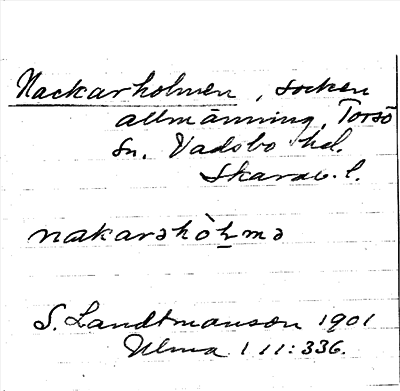 Nackarholmen, socken
allmänning, Torsö
sn. Vadsbo hd.
Skarab. l.
nakarəhòḻmə
S. Landtmanson 1901
Ulma 111:336.